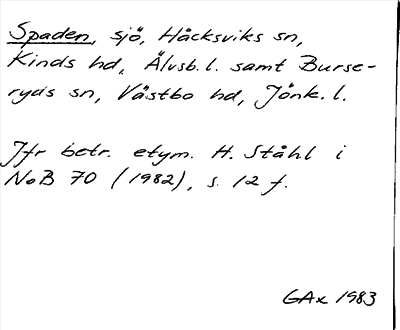 Spaden, sjö, Håcksviks sn,
Kinds hd, Älvsb. l. samt Burse-
ryds sn, Västbo hd, Jönk. l.
Jfr betr. etym. H. Ståhl i
NoB 70 (1982), s. 12 f.
GAx 1983